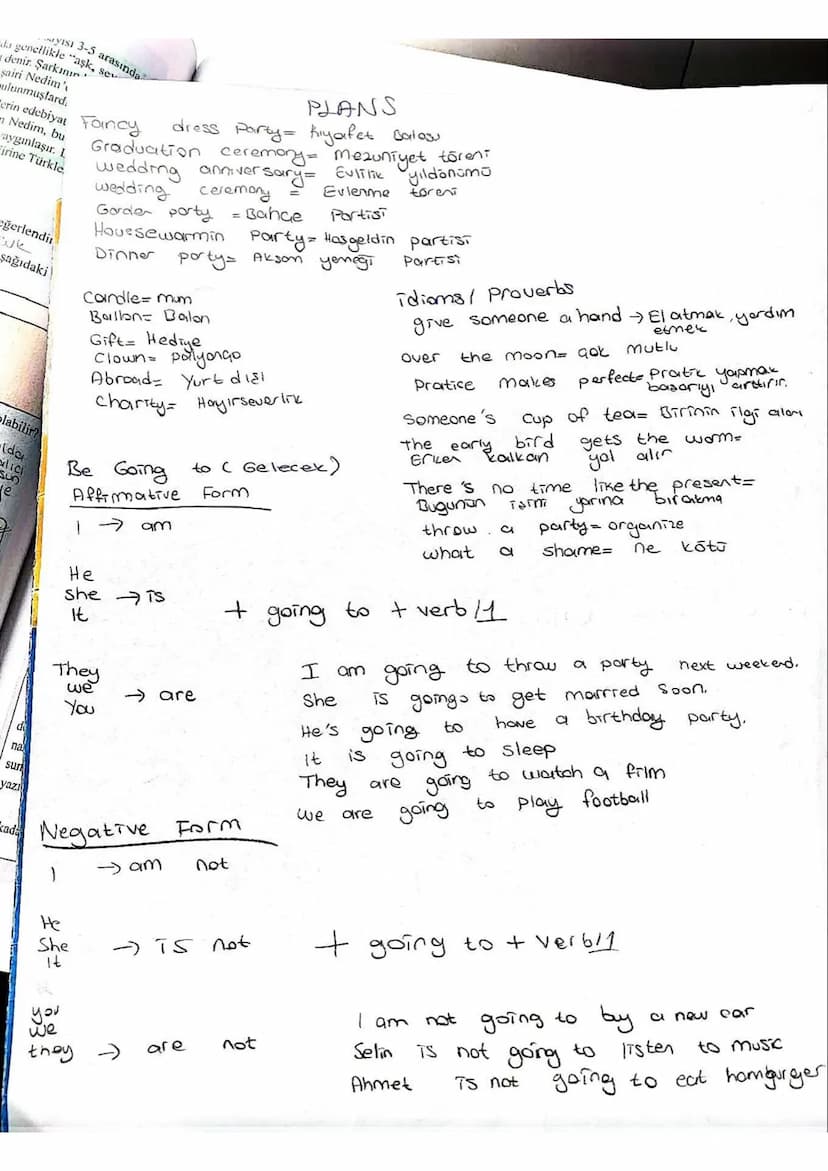 ayısı 3-5 arasında
da genellikle "aşk, sev
denir. Şarkının
şairi Nedim'
bulunmuşlard
erin edebiyat
n Nedim, bu
yaygınlaşır.
irine Türkle
eğerlendir
şağıdaki
olabilir?
PLANS
Fancy dress Party= kıyafet balosu
Graduation ceremony= Mezuniyet töreni
wedding anniversary= Evlilik yıldönümü
wedding ceremony = Evlenme töreni
Garden party = Bahçe Partisi
Housewarmin Party= Hoşgeldin partisi
Dinner party= Akşam yemeği partisi
Candle= mum
Ballon= Balon
Gift= Hediye
Clown= palyanço
Abroad= Yurt dışı
Charity= Hayırseverlik
idioms/ Proverbs
give someone a hand → El atmak, yardım
etmek
over the moon= çok mutlu
Pratice makes perfect= Pratik yapmak
başarıyı arttırır.
Someone's cup of tea= Birinin ilgi alanı
The early bird gets the worm=
Erken kalkan yol alır
There's no time like the present=
Bugünün işini yarına bırakma
throw a party= organize
what a shame= ne kötü
Be Going to (Gelecek)
Affirmative Form
I → am
He
she → is
It
+ going to + verb/1
They
we
You → are
I am going to throw a party next weekend.
She is goings to get married soon.
He's going to have a birthday party.
It is going to sleep
They are going to watch a film
we are going to play football
Negative Form
I → am not
He
She → is not
It
+ going to + verb/1
you
we
they → are not
I am not going to by a new car
Selin is not going to listen to music
Ahmet is not going to eat hamburger